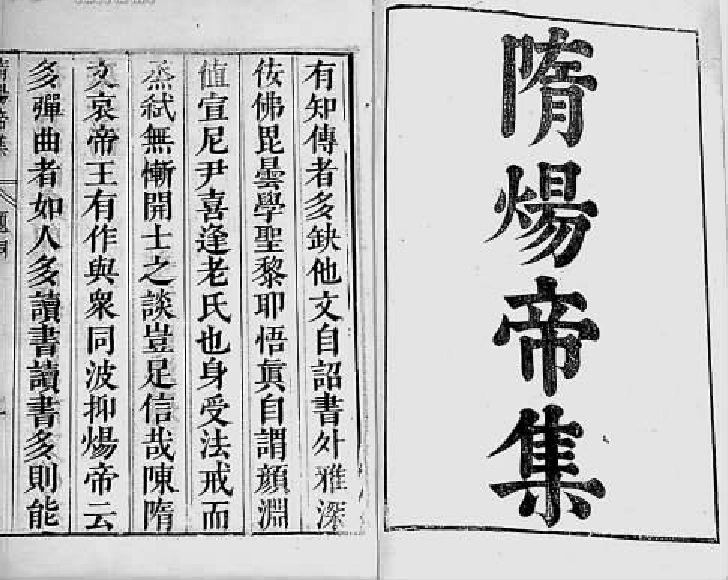 隋煬帝集
有知傳者多缺他文自詔書外雅深
佞佛毘曇學聖黎耶悟眞自謂顔淵
值宣尼尹喜逢老氏也身受法戒而
烝弑無慚開士之談豈足信哉陳隋
文哀帝王有作與衆同波抑煬帝云
多彈曲者如人多讀書讀書多則能
隋煬帝集